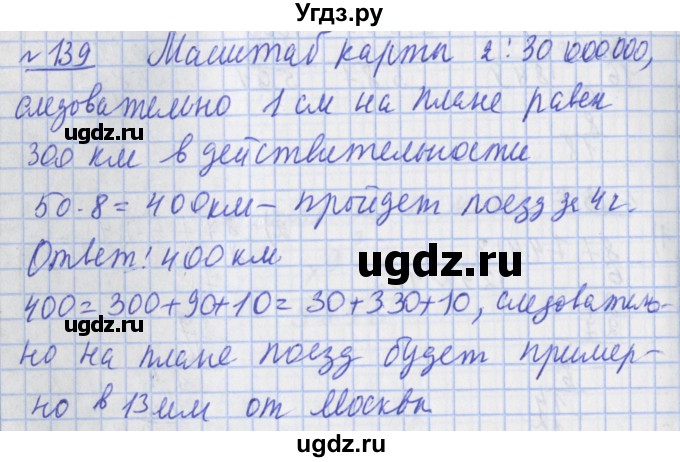 Угдз.ру
№139 Масштаб карты 2:30 000000,
следовательно 1 см на плане равен
ugdz.ru ugdz.ru
300 км в действительности
50·8=400км – пройдет поезд за 4г.
ugdz.ru
Ответ! 400 км
ugdz.ru ugdz.ru
400=300+90+10=30+330+10, следователь-
но на плане поезд будет пример-
но в 13мм от Москвы
ugdz.ru ugdz.ru
ugdz.ru